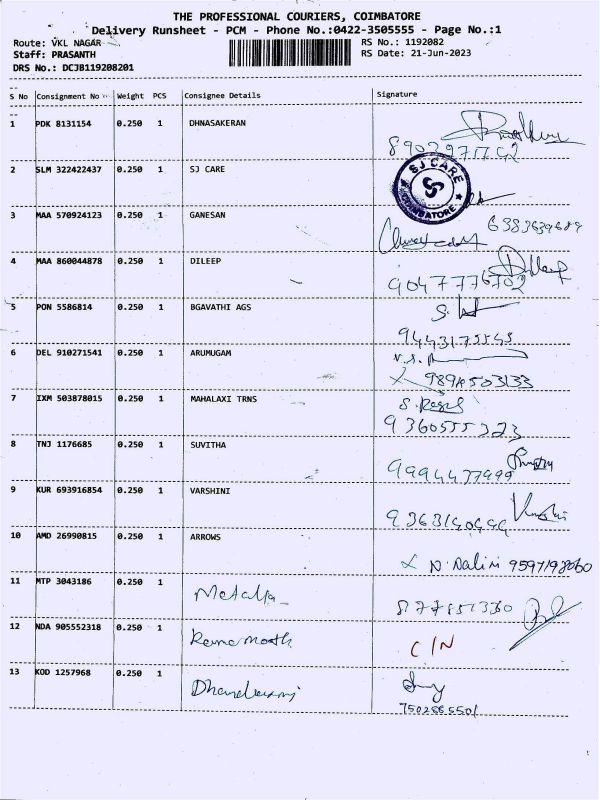 THE PROFESSIONAL COURIERS, COIMBATORE
Delivery Runsheet - PCM - Phone No.:0422-3505555 - Page No.:1
Route: VKL NAGAR RS No.: 1192082
Staff: PRASANTH RS Date: 21-Jun-2023
DRS No.: DCJB119208201
S No Consignment No Weight PCS Consignee Details Signature
1 PDK 8131154 0.250 1 DHNASAKERAN
2 SLM 322422437 0.250 1 SJ CARE
SJ CARE COIMBATORE
3 MAA 570924123 0.250 1 GANESAN
6383639689
4 MAA 860044878 0.250 1 DILEEP
9047776702
5 PON 5586814 0.250 1 BGAVATHI AGS
9443175545
6 DEL 910271541 0.250 1 ARUMUGAM
7 IXM 503878015 0.250 1 MAHALAXI TRNS
9360555323
8 TNJ 1176685 0.250 1 SUVITHA
9994477999
9 KUR 693916854 0.250 1 VARSHINI
10 AMD 26990815 0.250 1 ARROWS
N. Nalini 9597198060
11 MTP 3043186 0.250 1
12 NDA 905552318 0.250 1 C/N
13 KOD 1257968 0.250 1
7502865501